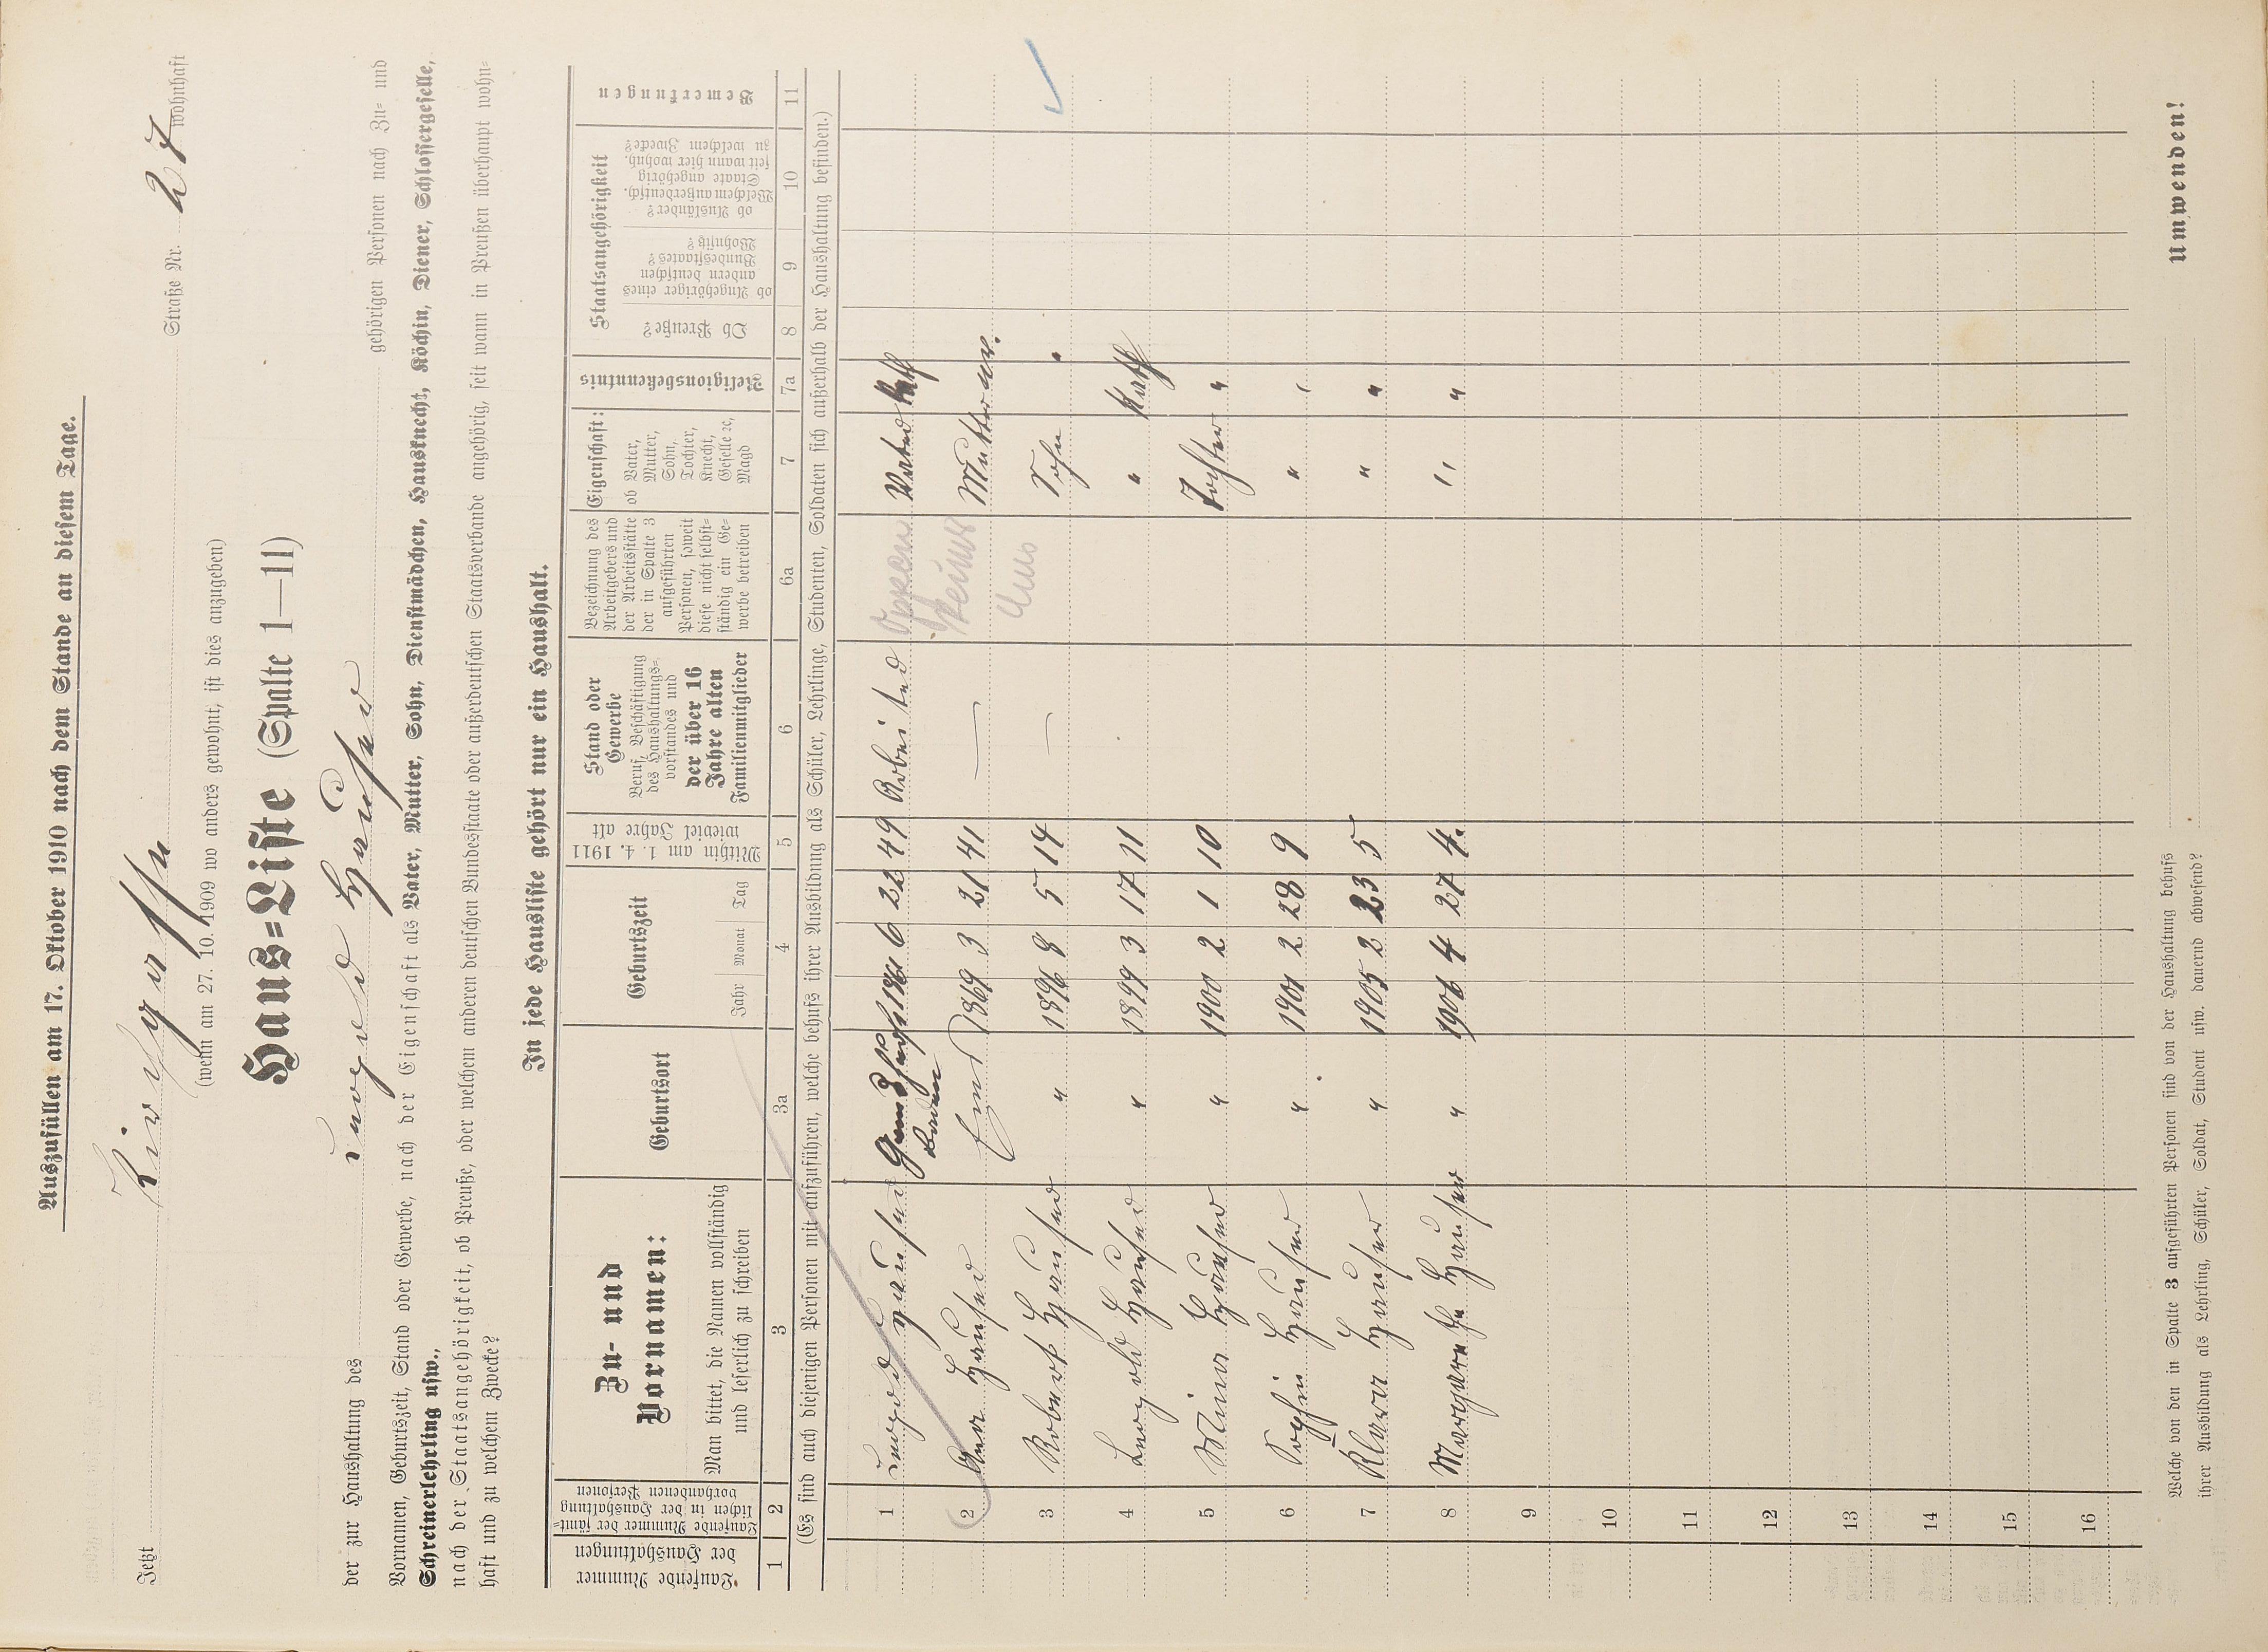 Auszufüllen am 17. Oktober 1910 nach dem Stande an diesem Tage.
Jetzt Straße Nr. 27 wohnhaft
(wenn am 27. 10. 1909 wo anders gewohnt, ist dies anzugeben)
Haus=Liste (Spalte 1—11)
der zur Haushaltung des Hauser gehörigen Personen nach Zu= und
Vornamen, Geburtszeit, Stand oder Gewerbe, nach der Eigenschaft als Vater, Mutter, Sohn, Dienstmädchen, Hausknecht, Köchin, Diener, Schlossergeselle,
Schreinerlehrling usw.,
nach der Staatsangehörigkeit, ob Preuße, oder welchem anderen deutschen Bundesstaate oder außerdeutschen Staatsverbande angehörig, seit wann in Preußen überhaupt wohn=
haft und zu welchem Zwecke?
In jede Hausliste gehört nur ein Haushalt.
Laufende Nummer der Haushaltungen
Laufende Nummer der sämt=lichen in der Haushaltung vorhandenen Personen
Zu- und Vornamen:
Man bittet, die Namen vollständig und leserlich zu schreiben
Geburtsort
Geburtszeit
Jahr Monat Tag
Mithin am 1. 4. 1911 wieviel Jahre alt
Stand oder Gewerbe
Beruf, Beschäftigung des Haushaltungs=vorstandes und der über 16 Jahre alten Familienmitglieder
Bezeichnung des Arbeitgebers und der Arbeitsstätte der in Spalte 3 aufgeführten Personen, soweit diese nicht selbst=ständig ein Ge=werbe betreiben
Eigenschaft:
ob Vater, Mutter, Sohn, Tochter, Knecht, Geselle ꝛc, Magd
Religionsbekenntnis
Staatsangehörigkeit
Ob Preuße?
ob Angehöriger eines andern deutschen Bundesstaates? Wohnsitz?
ob Ausländer? Welchem außerdeutsch. Staate angehörig seit wann hier wohnh. zu welchem Zwecke?
Bemerkungen
1 2 3 3a 4 5 6 6a 7 7a 8 9 10 11
(Es sind auch diejenigen Personen mit aufzuführen, welche behufs ihrer Ausbildung als Schüler, Lehrlinge, Studenten, Soldaten sich außerhalb der Haushaltung befinden.)
1 Hauser Baden 1861 6 22 49 Arbeiter Vater Kath
2 Hauser 1869 3 21 41 — Mutter ev.
3 Robert Hauser " 1896 8 5 14 — Sohn
4 Leopold Hauser " 1899 3 17 11 " Kath
5 Mina Hauser " 1900 2 1 10 Tochter "
6 Sophie Hauser " 1901 2 28 9 " "
7 Klara Hauser " 1905 2 23 5 " "
8 Margarethe Hauser " 1906 4 27 4. " "
9
10
11
12
13
14
15
16
Welche von den in Spalte 3 aufgeführten Personen sind von der Haushaltung behufs
ihrer Ausbildung als Lehrling, Schüler, Soldat, Student usw. dauernd abwesend?
Umwenden!